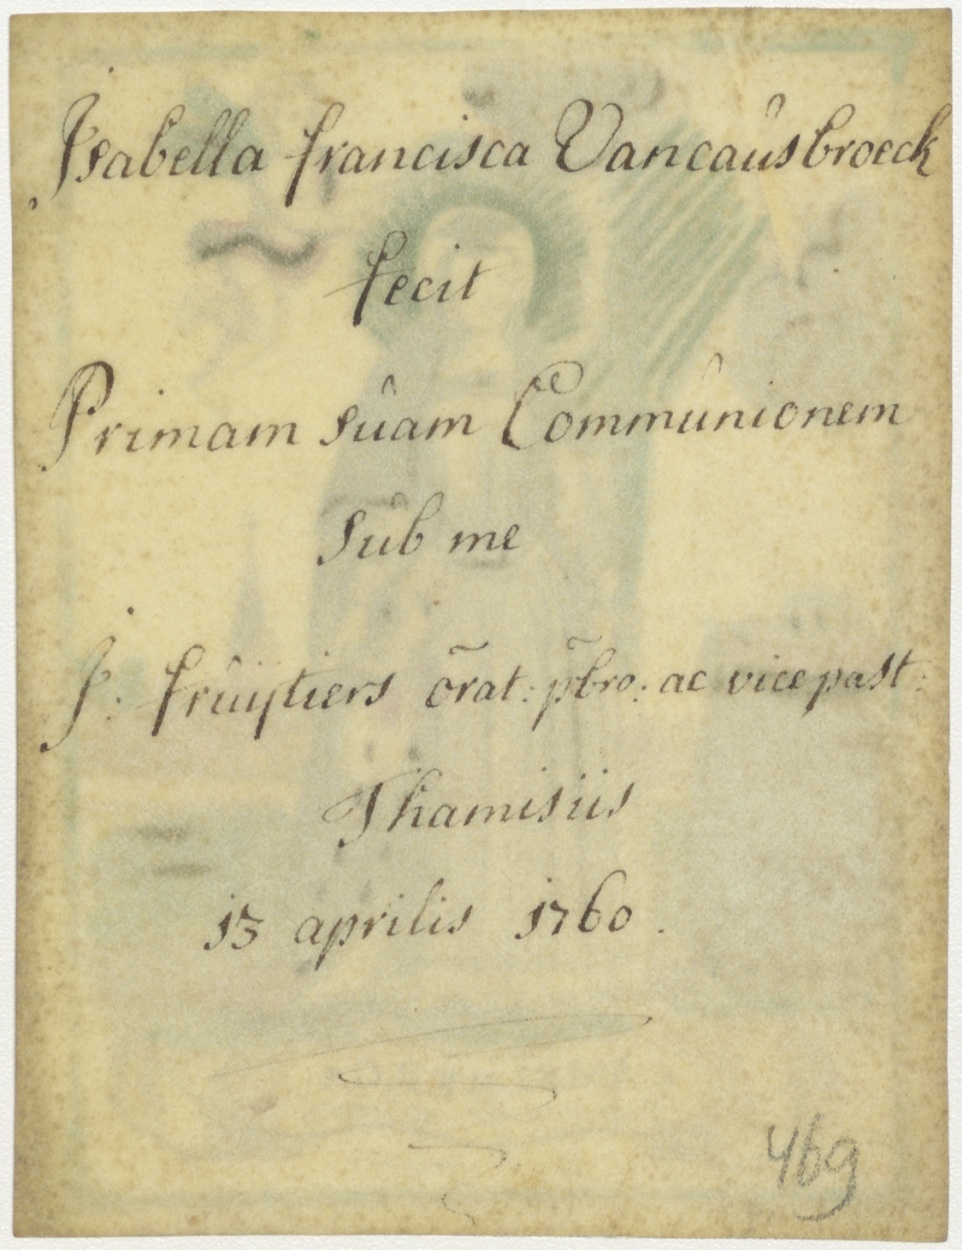 Isabella francisca Vancausbroeck
fecit
Primam suam Communionem
sub me
J: fruijtiers õrat: p̃bro: ac vice past:
Thamisiis
13 aprilis 1760.
469